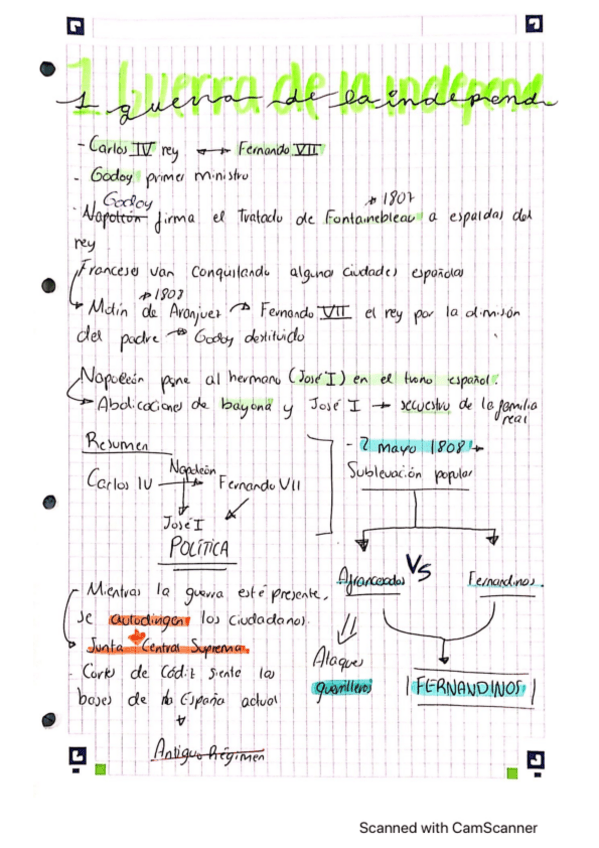 1 Guerra de la independ.
1 guerra de la independ.
- Carlos IV rey ↔ Fernando VII
- Godoy primer ministro
Godoy → 1807
· Napoleón firma el Tratado de Fontainebleau a espaldas del
rey
Franceses van conquistando algunas ciudades españolas
→ 1808
→ Motín de Aranjuez → Fernando VII el rey por la dimisión
del padre → Godoy destituido
Napoleón pone al hermano (José I) en el trono español.
→ Abdicaciones de bayona y José I → secuestro de la familia
real
Resumen
Carlos IV Napoleón → Fernando VII
José I
POLÍTICA
- Mientras la guerra esté presente,
se autodirigen los ciudadanos.
→ Junta Central Suprema.
- Cortes de Cádiz siente las
bases de la España actual
Antiguo Régimen
- 2 mayo 1808 →
Sublevación popular
Afrancesados VS Fernandinos.
Ataques
guerrilleros
| FERNANDINOS |
Scanned with CamScanner